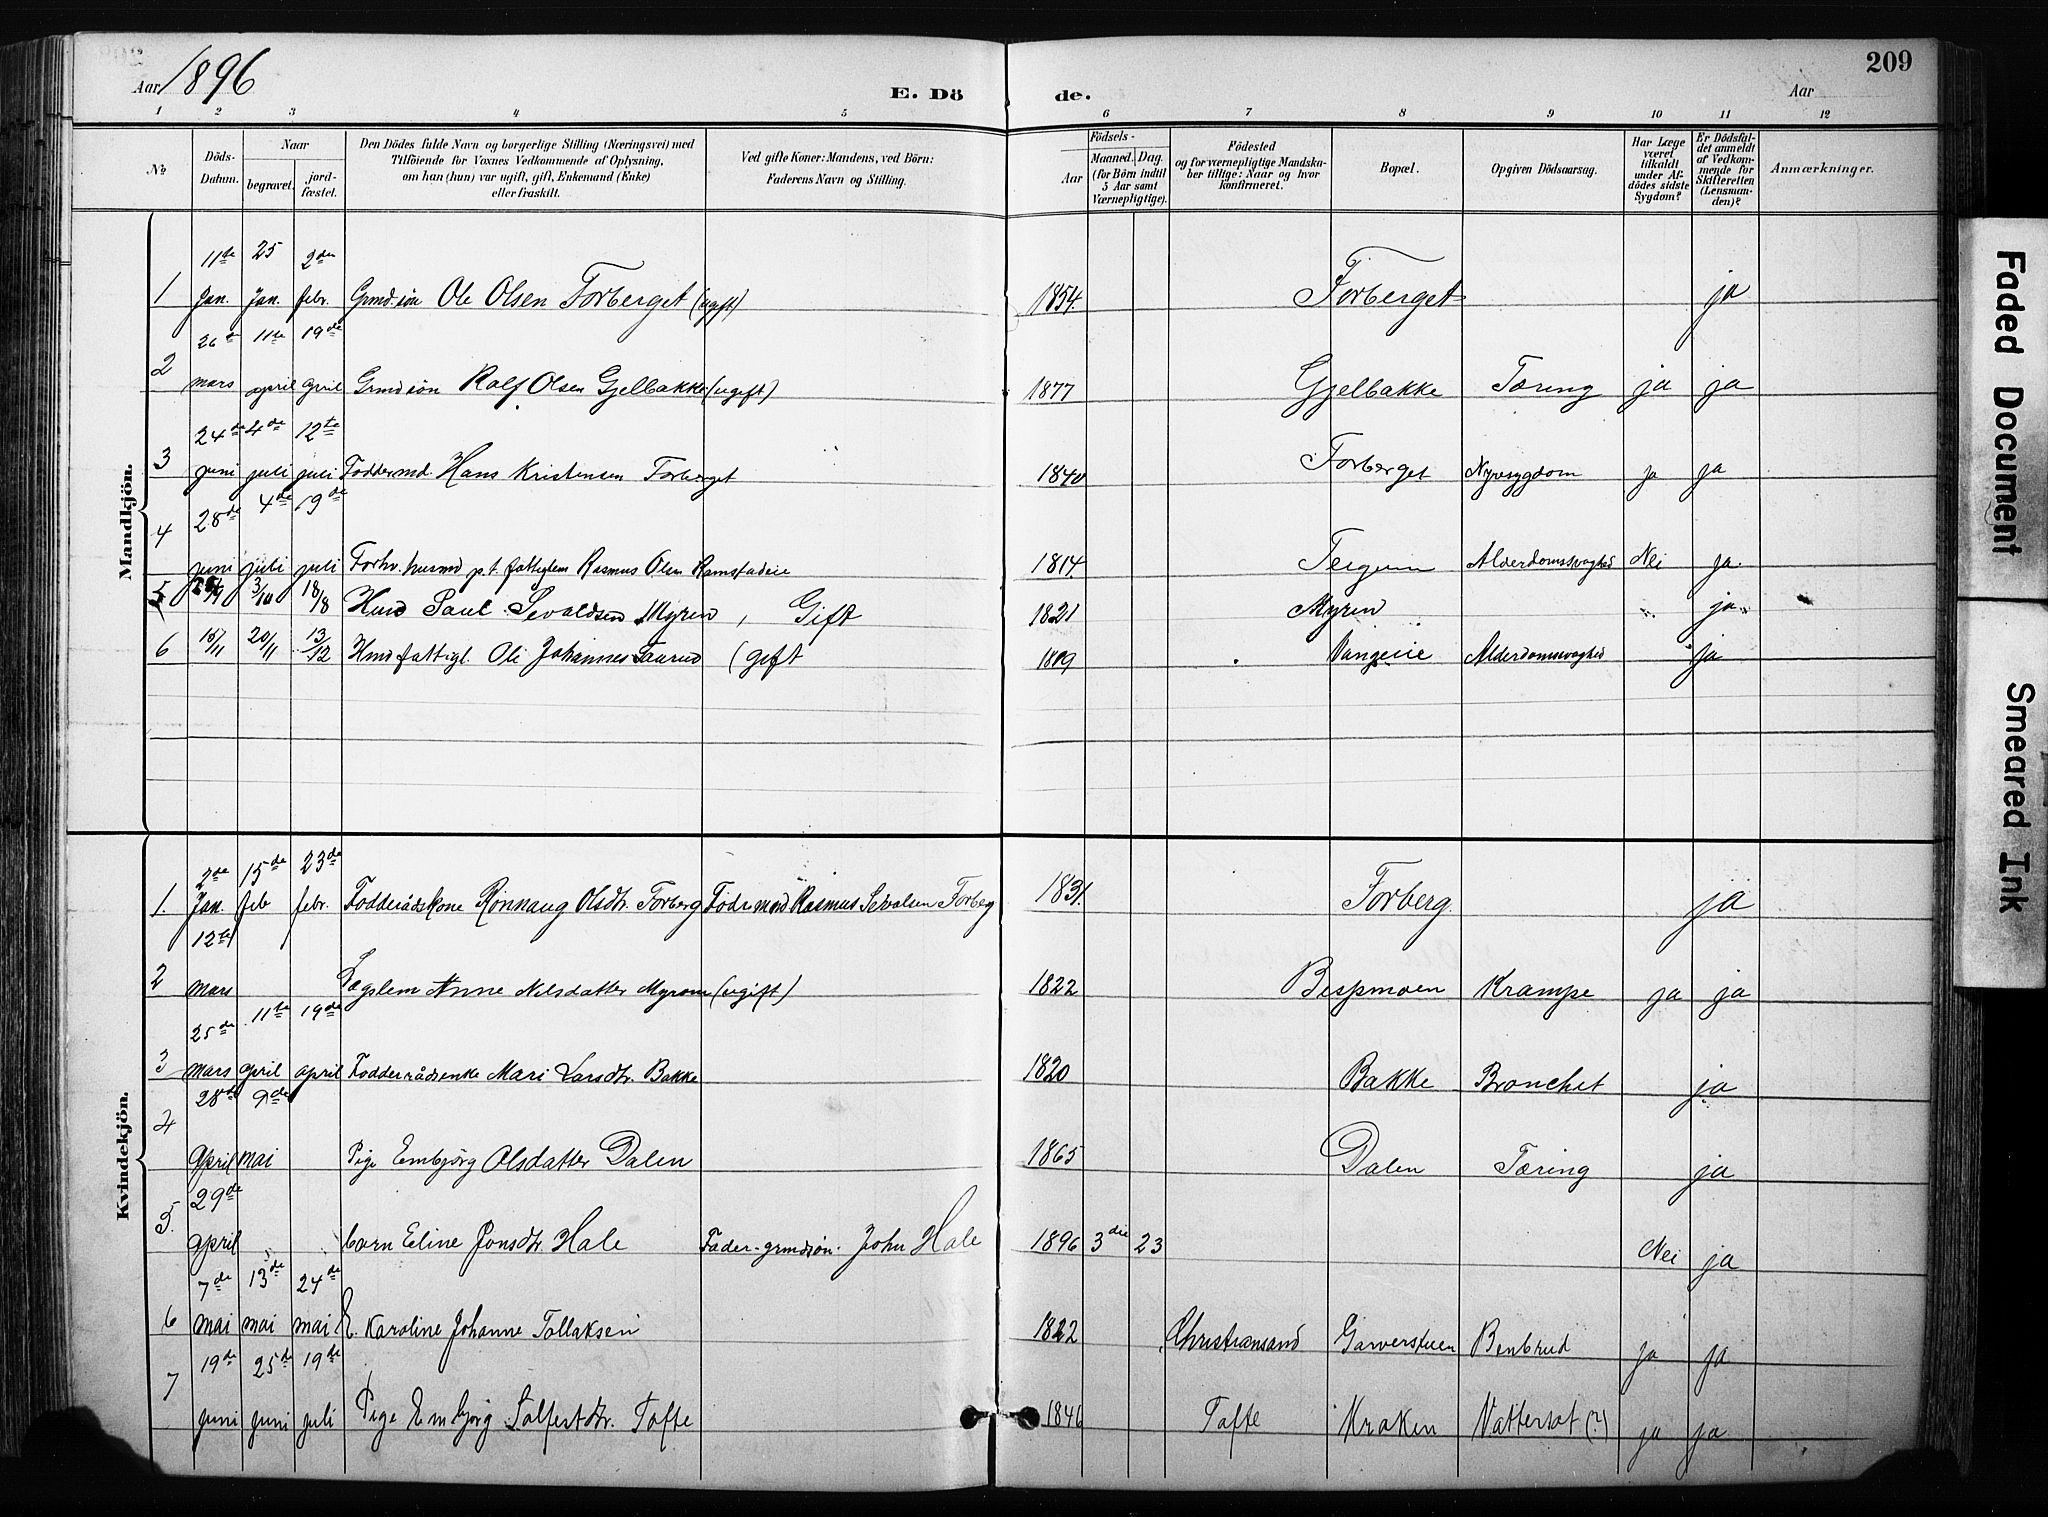 Aar 1896
E. Dö de.
Aar
209
1 2 3 4 5 6 7 8 9 10 11 12
No
Döds-Datum.
Naar
begravet.
jord-fæstet.
Den Dödes fulde Navn og borgerlige Stilling (Næringsvei) med
Tilföiende for Voxnes Vedkommende af Oplysning,
om han (hun) var ugift, gift, Enkemand (Enke)
eller fraskilt.
Ved gifte Koner: Mandens, ved Börn:
Faderens Navn og Stilling.
Födsels-
Aar
Maaned. Dag.
(for Börn indtil
5 Aar samt
Værnepligtige).
Födested
og for værnepligtige Mandska-
ber tillige: Naar og hvor
konfirmeret.
Bopæl.
Opgiven Dödsaarsag.
Har Læge
været
tilkaldt
under Af-
dödes sidste
Sygdom?
Er Dödsfal-
det anmeldt
af Vedkom-
mende for
Skifteretten
(Lensman-
den)?
Anmærkninger.
Mandkjön.
11te 25 2den
1 Jan. Jan. febr. Grmd.søn Ole Olsen Forberget (ugift) 1854. Forberget ja
26de 11te 19de
2 mars april april Grmdsøn Ralf Olsen Gjelbakke (ugift) 1877 Gjelbakke Tæring ja ja
24de 4de 12te
3 juni juli juli Foddermd Hans Kristensen Forberget 1840 Forberget Nyresygdom ja ja
28de 4de 19de
4 juni juli juli Forhv. husmd p.t. fattiglem Rasmus Olsen Ramstadeie 1814. Teigum Alderdomssvaghed Nei ja.
5 3/10 18/8 Hmd Paul Sevaldsen Myren, Gift 1821 Myren " ja
6 15/11 20/11 13/12 Hmd fattigl. Ole Johannes Saarud (gift 1819 Vangeie Alderdomssvaghed ja
Kvindekjön.
2de 15de 23de
1. Jan. feb febr. Fodderådskone Rønnaug Olsdtr. Forberg Fodr mand Rasmus Sevalsen Forberg 1831. Forberg. ja
12te
2 mars Lægslem Anne Nilsdatter Myrom (ugift) 1822 Bispmoen Krampe ja ja
25de 11te 19de
3 mars april april Fodderrådsenke Mari Larsdtr. Bakke 1820 Bakke Bronchet ja
28de 9de
4 april mai Pige Embjörg Olsdatter Dalen 1865 Dalen Tæring ja
29de
5. april barn Eline Jonsdtr. Hale Fader-grmdsøn. John Hale 1896 3die 23 Nei ja
7de 13de 24de
6 mai mai mai E. Karoline Johanne Tollaksen 1822 Christiansand Garverstuen Benbrud ja ja
19de 25de 19de
7 juni juni juli Pige Embjörg Solfestdtr. Tofte 1846 Tofte Kraken Vattersot (?) ja ja
Faded Document
Smeared Ink